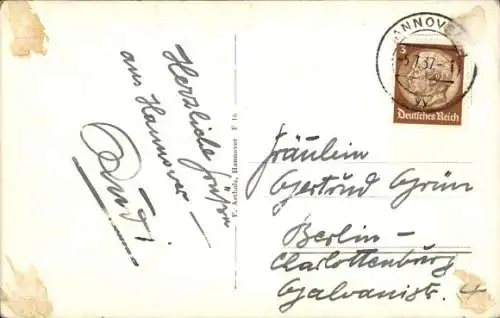 Herzliche Grüße
aus Hannover –
F. Astholz, Hannover F 16
HANNOVER
3
Deutsches Reich
Fräulein
Gertrud Grün
Berlin –
Charlottenburg
Galvanistr. 4